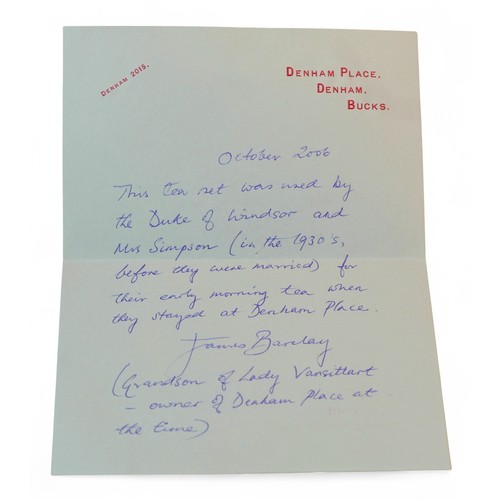 DENHAM 2015.
DENHAM PLACE,
DENHAM,
BUCKS.
October 2006
This tea set was used by
the Duke of Windsor and
Mrs Simpson (in the 1930's,
before they were married) for
their early morning tea when
they stayed at Denham Place.
James Barclay
(Grandson of Lady Vansittart
– owner of Denham Place at
the time)